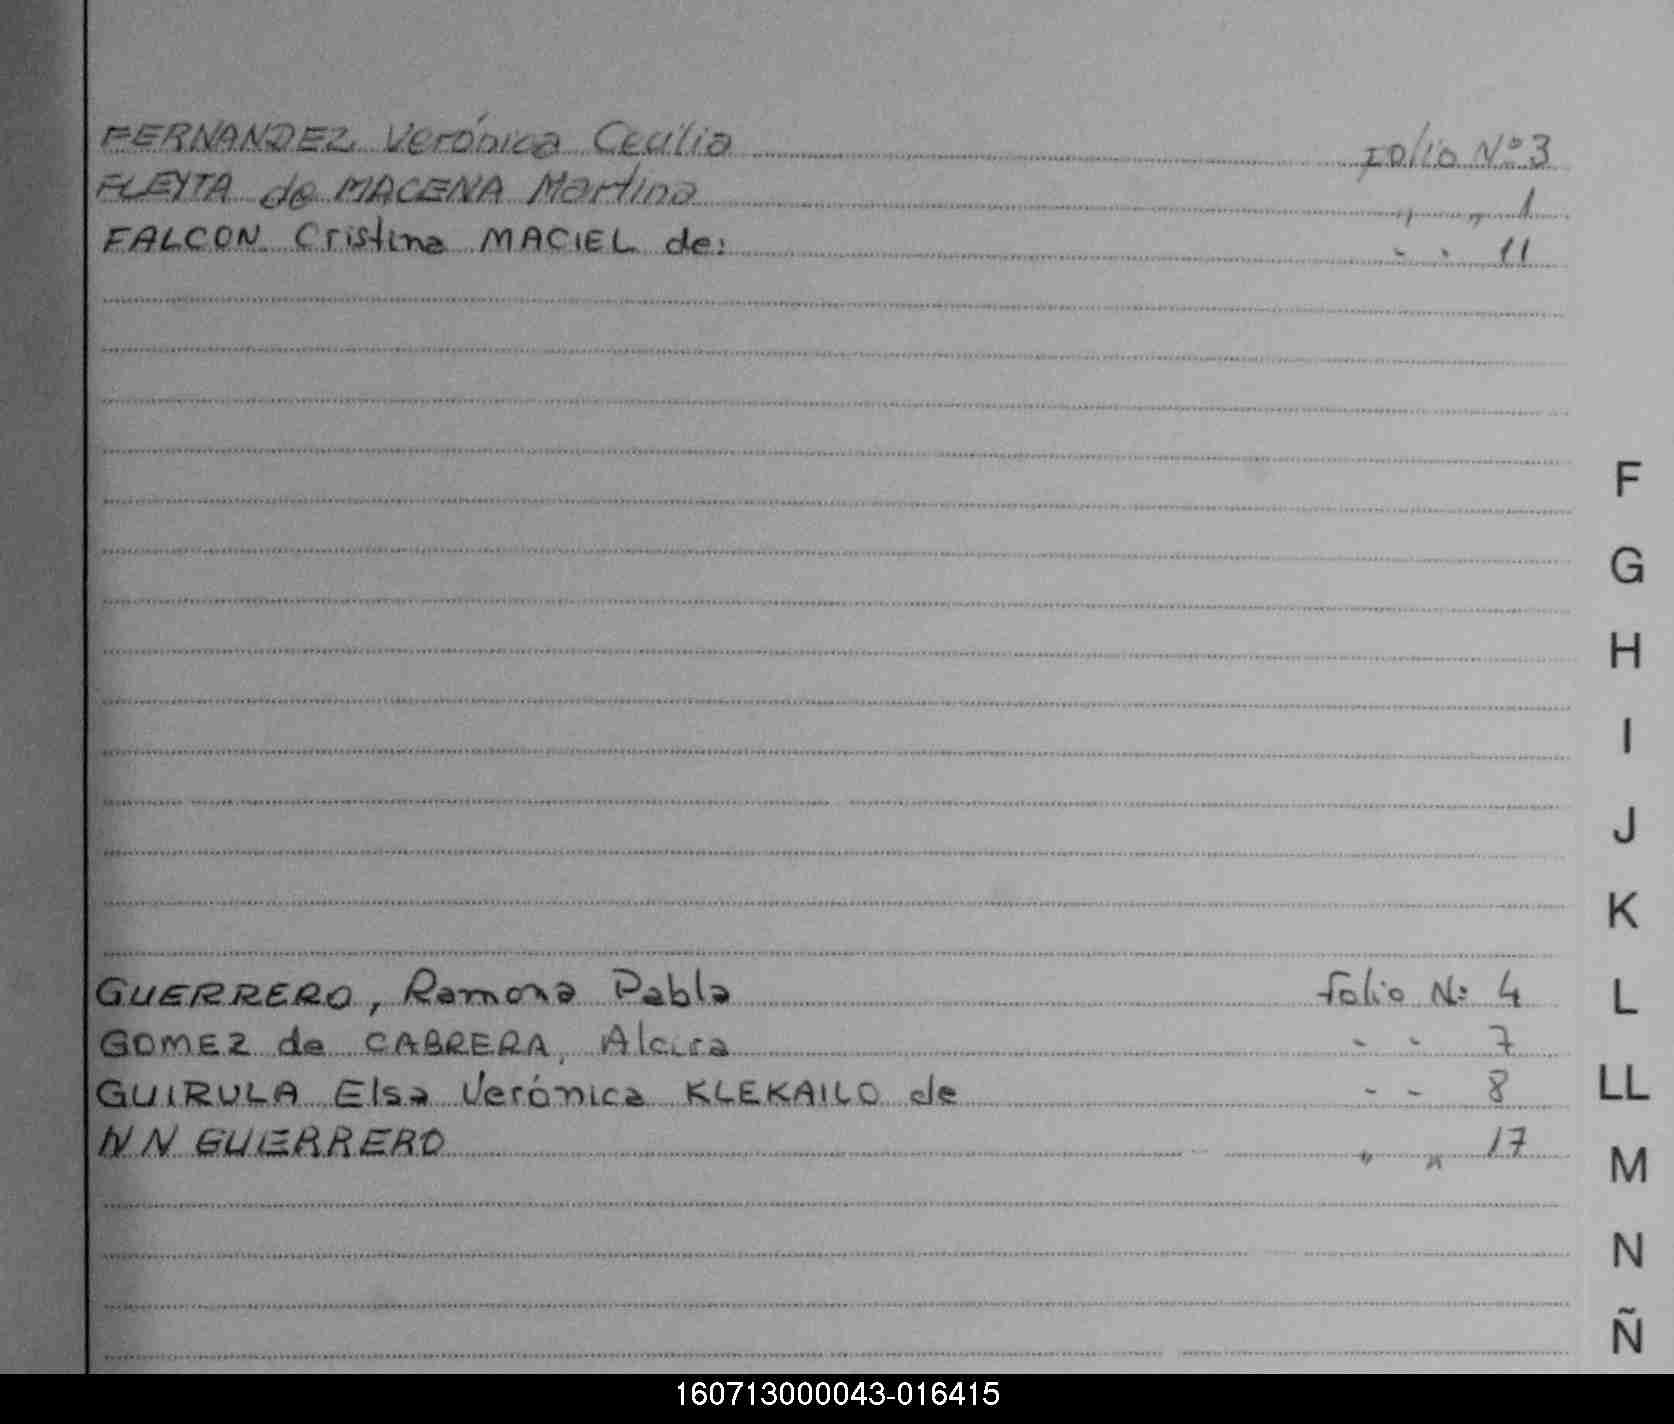 FERNANDEZ, Verónica Cecilia folio Nº 3
FLEYTA de MACENA Martina " " 1
FALCON Cristina MACIEL de: " " 11
F
G
H
I
J
K
GUERRERO, Ramona Pabla folio Nº 4
L
GOMEZ de CABRERA, Alcira " " 7
GUIRULA Elsa Verónica KLEKAILO de " " 8
LL
NN GUERRERO " " 17
M
N
Ñ
160713000043-016415